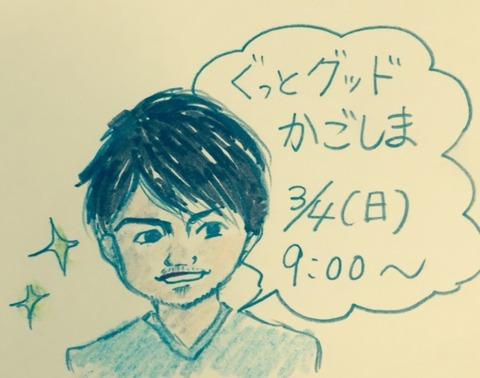 ぐっとグッド
かごしま
3/4(日)
9:00～